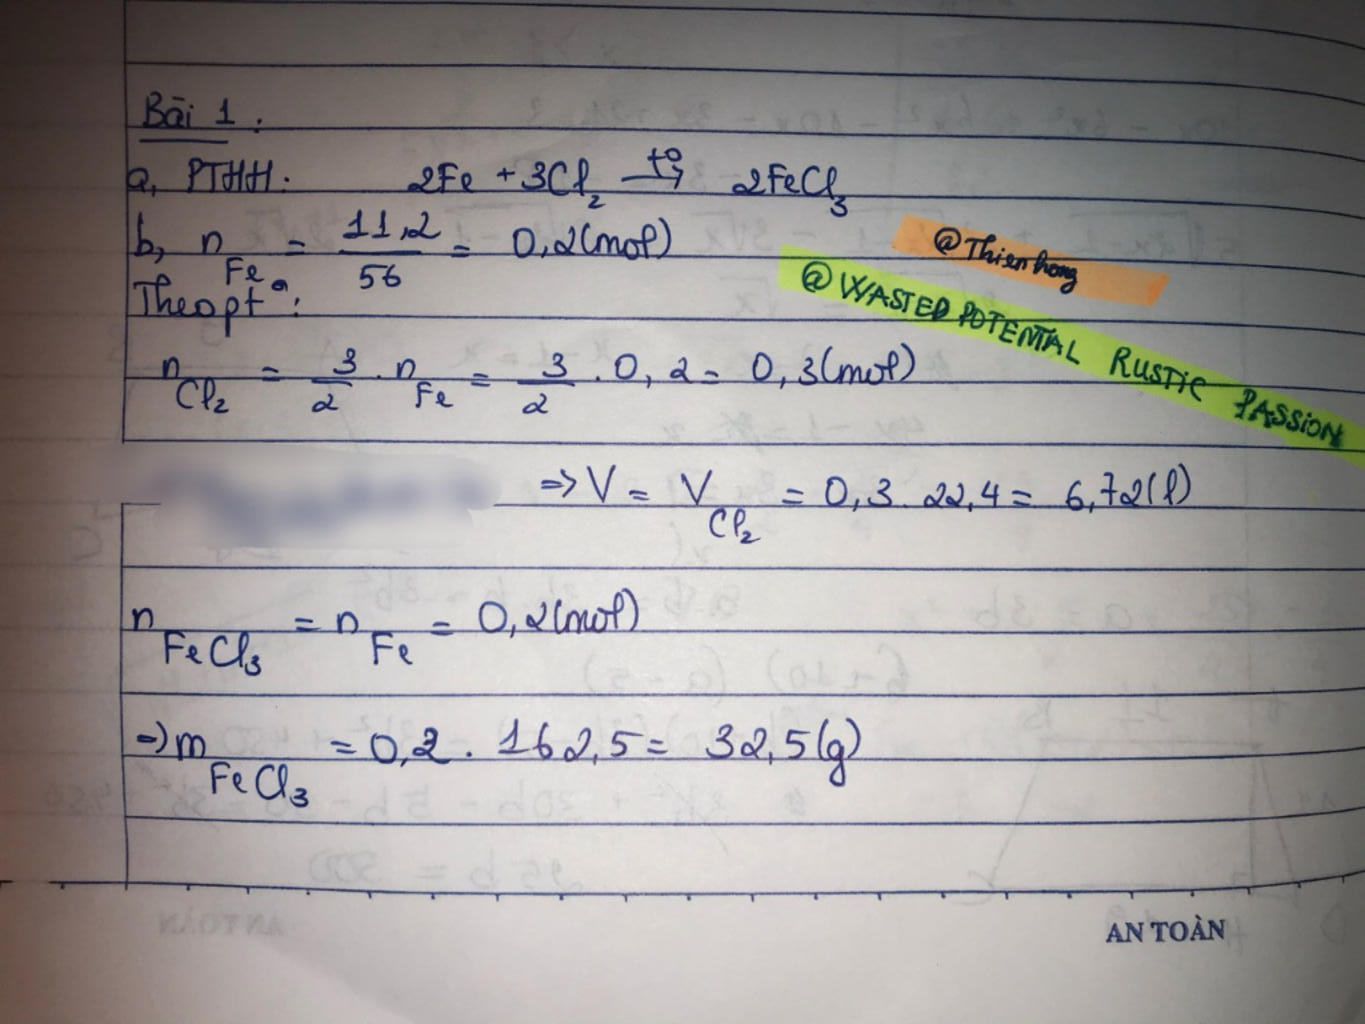 Bài 1:
a, PTHH: 2Fe + 3Cl₂ —t°→ 2FeCl₃
b, n Fe = 11,2/56 = 0,2(mol)
@Thienhong
@WASTED POTENTIAL RUSTIC PASSION
Theo pt:
n Cl₂ = 3/2 . n Fe = 3/2 . 0,2 = 0,3(mol)
=> V = V Cl₂ = 0,3 . 22,4 = 6,72(l)
n FeCl₃ = n Fe = 0,2(mol)
=> m FeCl₃ = 0,2 . 162,5 = 32,5(g)
AN TOÀN